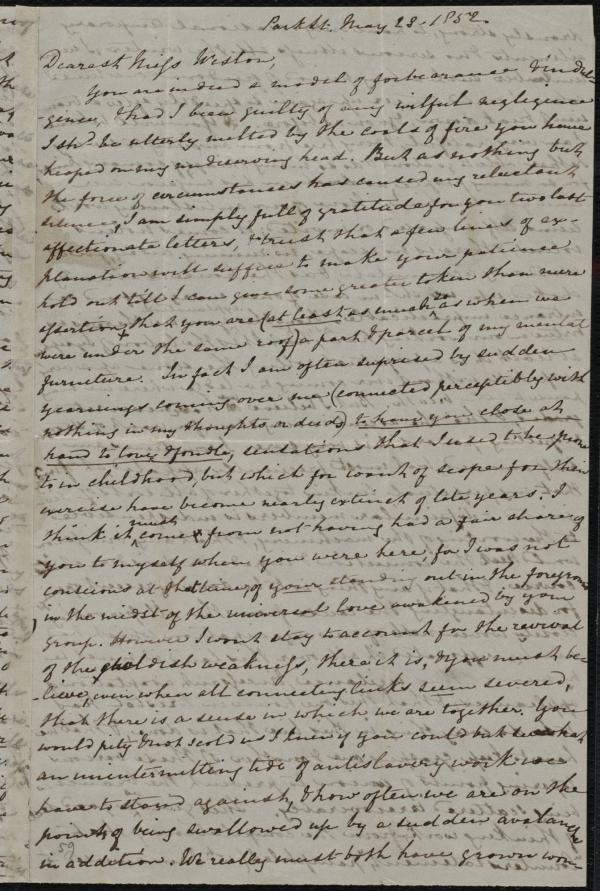 Park St. May 28. 1852.
Dearest Miss Weston,
You are indeed a model of forbearance & indul-
-gence, & had I been guilty of any wilful negligence
I shd. be utterly melted by the coals of fire you have
heaped on my undeserving head. But as nothing but
the force of circumstances has caused my reluctant
silence, I am simply full of gratitude for your two last
affectionate letters, & trust that a few lines of ex-
planation will suffice to make your patience
hold out till I can give some greater token than mere
assertion, that you are (at least as much so as when we
were under the same roof) a part & parcel of my mental
furniture. In fact I am often suprised by sudden
yearnings coming over me (connected perceptibly with
nothing in my thoughts or deeds) to have you close at
hand to love & fondle, sensations that I used to be prone
to in childhood, but which for want of scope for their
exercise have become nearly extinct of late years. I
think it must come from not having had a fair share of
you to myself when you were here, for I was not
conscious at that time of your standing out in the foregrou
in the midst of the universal love awakened by your
group. However I wont stay to account for the revival
of the childish weakness, there it is, & you must be-
-lieve, even when all connecting links seem severed,
that there is a sense in which we are together. You
would pity & not scold us I know if you could but see what
an unintermitting tide of antislavery work we
have to stand against, & how often we are on the
point of being swallowed up by a sudden avalanche
in addition. We really must both have grown won-
59